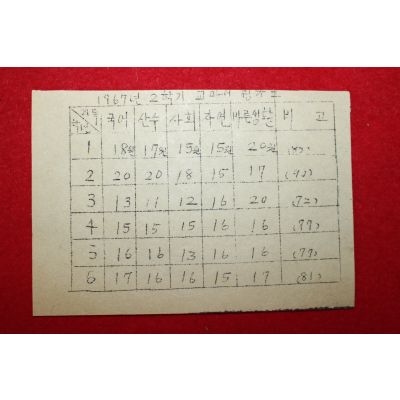 1967년 2학기 교과
과목 국어 산수 사회 자연 바른생활 비 고
1 18 17 15 15 20
2 20 20 18 15 17
3 13 11 12 16 20 (72)
4 15 15 15 16 16 (77)
5 16 16 13 16 16 (77)
6 17 16 16 15 17 (81)